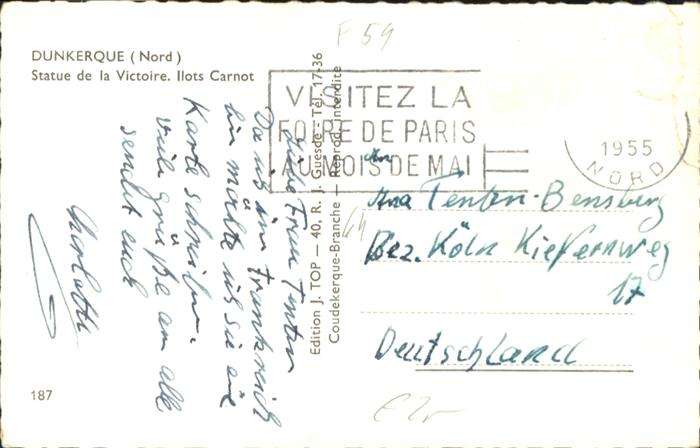 F 59
DUNKERQUE (Nord)
Statue de la Victoire. Ilots Carnot
VISITEZ LA
FOIRE DE PARIS
AU MOIS DE MAI
1955
NORD
Edition J. TOP — 40, R. J. Guesde - Tél. 17-36
Coudekerque-Branche — Reprod. Interdite
Liebe Frau Tenten
Da ich in Frankreich
bin möchte ich sie eine
Karte schreiben.
Viele Grüße an alle
sendet euch
Charlotte
Tenten-Bensberg
Bez. Köln Kiefernweg
17
Deutschland
187